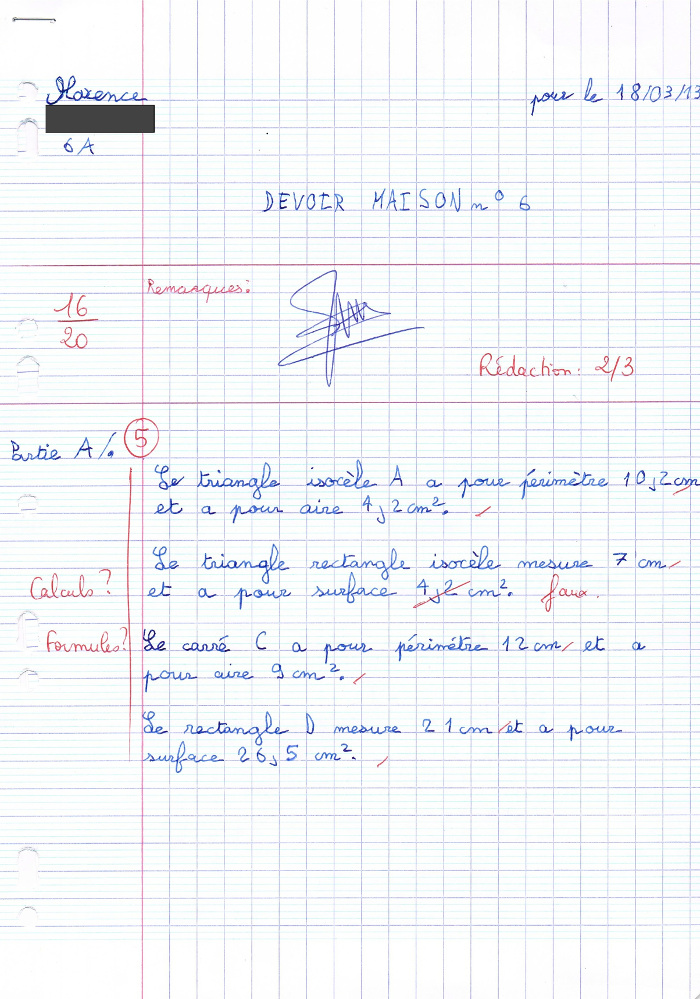 Florence
pour le 18/03/13
6A
DEVOIR MAISON n° 6
16
20
Remarques:
Rédaction: 2/3
Partie A/.
5
Le triangle isocèle A a pour périmètre 10,2 cm
et a pour aire 4,2 cm².
Le triangle rectangle isocèle mesure 7 cm
Calculs?
et a pour surface 4,2 cm². faux.
Formules?
Le carré C a pour périmètre 12 cm et a
pour aire 9 cm².
Le rectangle D mesure 21 cm et a pour
surface 26,5 cm².